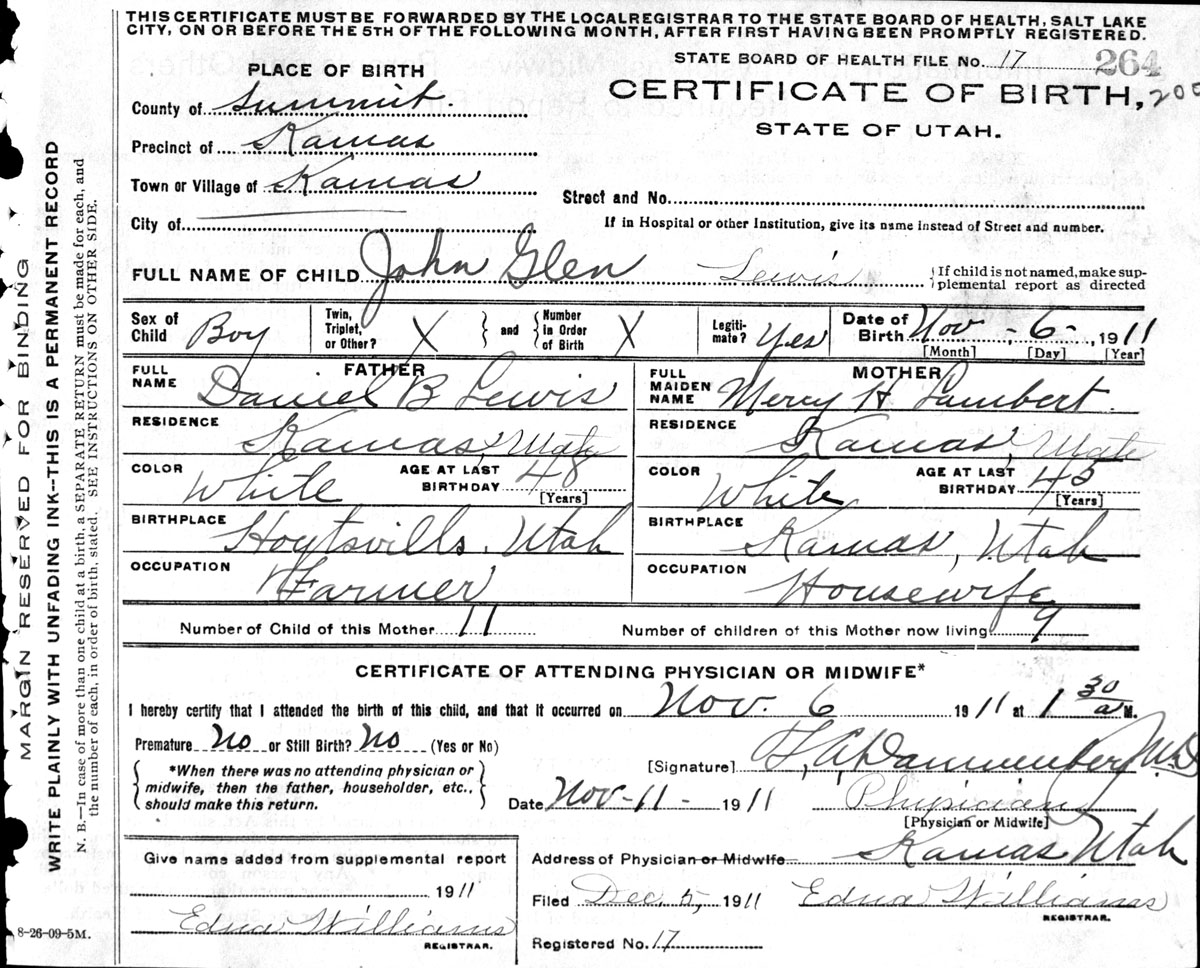 THIS CERTIFICATE MUST BE FORWARDED BY THE LOCAL REGISTRAR TO THE STATE BOARD OF HEALTH, SALT LAKE
CITY, ON OR BEFORE THE 5TH OF THE FOLLOWING MONTH, AFTER FIRST HAVING BEEN PROMPTLY REGISTERED.
STATE BOARD OF HEALTH FILE No. 17 264
PLACE OF BIRTH
CERTIFICATE OF BIRTH,
County of Summit.
STATE OF UTAH.
Precinct of Kamas
Town or Village of Kamas
Street and No.
City of
If in Hospital or other Institution, give its name instead of Street and number.
FULL NAME OF CHILD John Glen Lewis
If child is not named, make sup-
plemental report as directed
Sex of Child Boy
Twin, Triplet, or Other? X and Number in Order of Birth X
Legiti-mate? Yes
Date of Birth Nov - 6 - 1911
[Month] [Day] [Year]
FATHER
FULL NAME Daniel B Lewis
RESIDENCE Kamas, Utah
COLOR White AGE AT LAST BIRTHDAY 48 [Years]
BIRTHPLACE Hoytsville, Utah
OCCUPATION Farmer
MOTHER
FULL MAIDEN NAME Mercy H Lambert.
RESIDENCE Kamas, Utah
COLOR White AGE AT LAST BIRTHDAY [Years]
BIRTHPLACE Kamas, Utah
OCCUPATION Housewife
Number of Child of this Mother 11 Number of children of this Mother now living 9
CERTIFICATE OF ATTENDING PHYSICIAN OR MIDWIFE*
I hereby certify that I attended the birth of this child, and that it occurred on Nov. 6 1911 at 1 30 a M.
Premature No or Still Birth? No (Yes or No)
*When there was no attending physician or
midwife, then the father, householder, etc.,
should make this return.
[Signature] M.D
Date Nov-11- 1911 Physician
[Physician or Midwife]
Address of Physician or Midwife Kamas Utah
Give name added from supplemental report
1911
Edna Williams
REGISTRAR.
Filed Dec. 5, 1911 Edna Williams
REGISTRAR.
Registered No. 17
8-26-09-5M.
MARGIN RESERVED FOR BINDING
WRITE PLAINLY WITH UNFADING INK--THIS IS A PERMANENT RECORD
N. B.—In case of more than one child at a birth, a SEPARATE RETURN must be made for each, and
the number of each, in order of birth, stated. SEE INSTRUCTIONS ON OTHER SIDE.